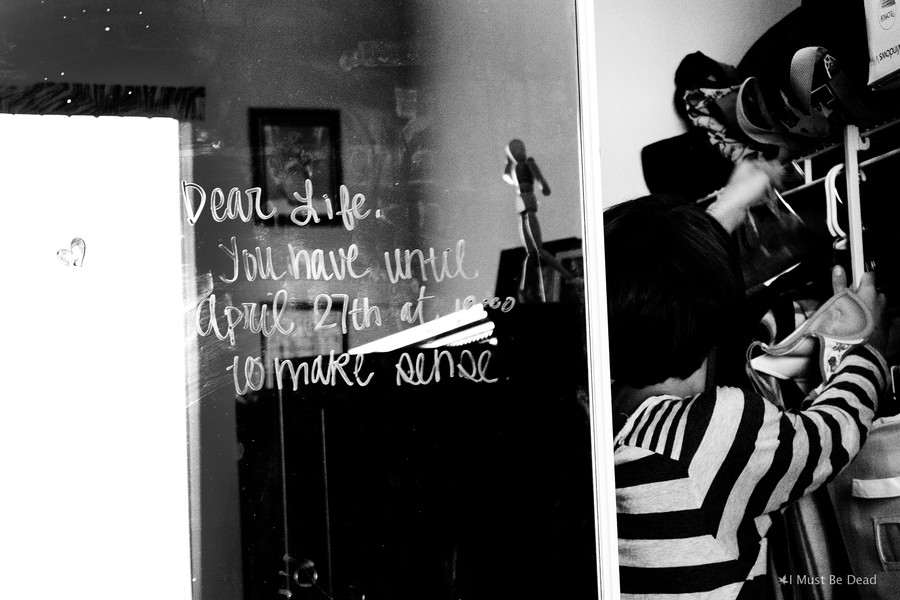 Dear Life.
You have until
April 27th at
to make sense
Windows
I Must Be Dead